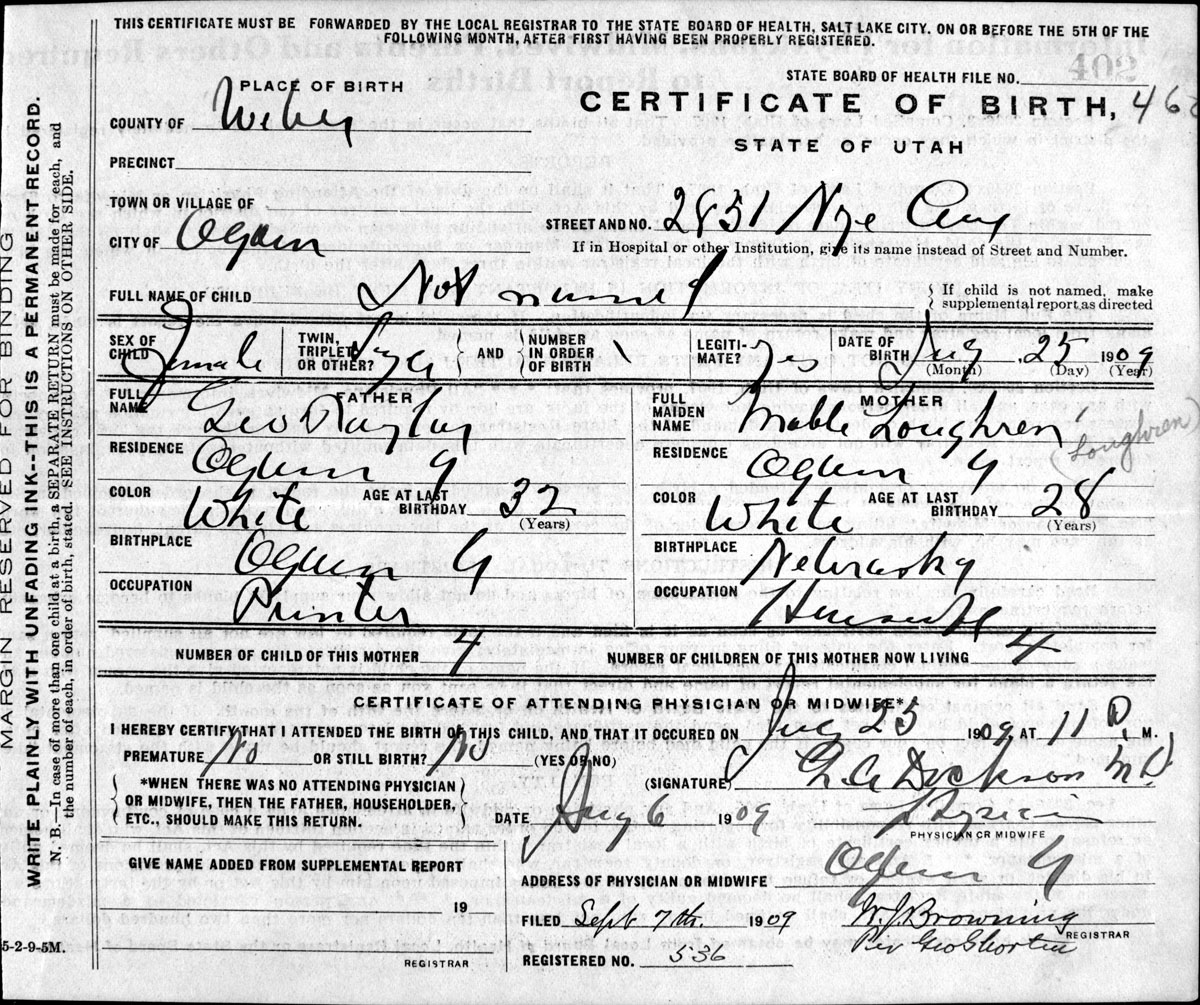 THIS CERTIFICATE MUST BE FORWARDED BY THE LOCAL REGISTRAR TO THE STATE BOARD OF HEALTH, SALT LAKE CITY, ON OR BEFORE THE 5TH OF THE
FOLLOWING MONTH, AFTER FIRST HAVING BEEN PROPERLY REGISTERED.
MARGIN RESERVED FOR BINDING
WRITE PLAINLY WITH UNFADING INK--THIS IS A PERMANENT RECORD.
N. B.—In case of more than one child at a birth, a SEPARATE RETURN must be made for each, and
the number of each, in order of birth, stated. SEE INSTRUCTIONS ON OTHER SIDE.
STATE BOARD OF HEALTH FILE NO. 402
PLACE OF BIRTH
CERTIFICATE OF BIRTH,
COUNTY OF Weber
STATE OF UTAH
PRECINCT
TOWN OR VILLAGE OF
STREET AND NO. 2851 Nye Ave
CITY OF Ogden
If in Hospital or other Institution, give its name instead of Street and Number.
FULL NAME OF CHILD Not named
If child is not named, make
supplemental report as directed
SEX OF CHILD Female TWIN, TRIPLET OR OTHER? AND NUMBER IN ORDER OF BIRTH 1 LEGITI-MATE? Yes DATE OF BIRTH Aug 25 1909
(Month) (Day) (Year)
FATHER MOTHER
FULL NAME Geo FULL MAIDEN NAME Mable Loughren
(Loughren)
RESIDENCE Ogden U RESIDENCE Ogden U
COLOR White AGE AT LAST BIRTHDAY 32 (Years) COLOR White AGE AT LAST BIRTHDAY 28 (Years)
BIRTHPLACE Ogden U BIRTHPLACE Nebraska
OCCUPATION Printer OCCUPATION
NUMBER OF CHILD OF THIS MOTHER 4 NUMBER OF CHILDREN OF THIS MOTHER NOW LIVING 4
CERTIFICATE OF ATTENDING PHYSICIAN OR MIDWIFE*
I HEREBY CERTIFY THAT I ATTENDED THE BIRTH OF THIS CHILD, AND THAT IT OCCURED ON Aug 25 1909 AT 11 P. M.
PREMATURE No OR STILL BIRTH? No (YES OR NO)
(SIGNATURE) Dickson M.D.
*WHEN THERE WAS NO ATTENDING PHYSICIAN
OR MIDWIFE, THEN THE FATHER, HOUSEHOLDER,
ETC., SHOULD MAKE THIS RETURN.
DATE Aug 6 1909 Physician
PHYSICIAN OR MIDWIFE
GIVE NAME ADDED FROM SUPPLEMENTAL REPORT
ADDRESS OF PHYSICIAN OR MIDWIFE Ogden U
19
FILED Sept 7th. 1909 W. J. Browning
REGISTRAR
REGISTRAR
REGISTERED NO. 536
5-2-9-5M.